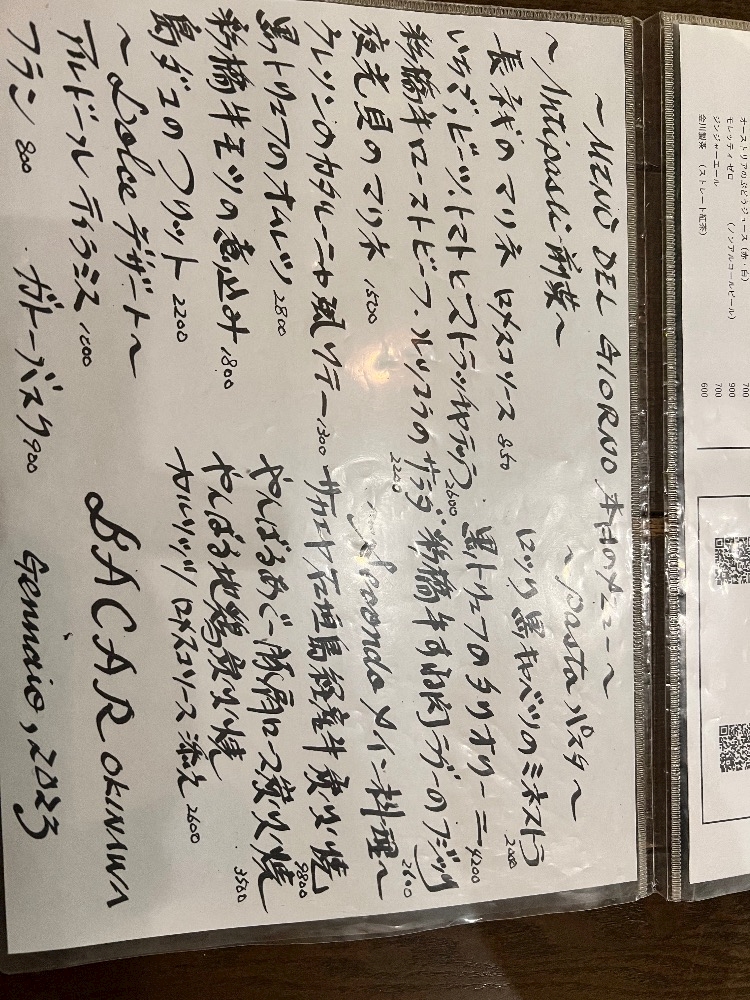 ~MENÙ DEL GIORNO 本日のメニュー~
~Antipasti 前菜~
長ネギのマリネ ロメスコソース 850
いちご、ビーツ、トマトとストラッチャテッラ 2600
彩橋牛ローストビーフ、ルッコラのサラダ 2200
夜光貝のマリネ 1500
クレソンのカタルーニャ風ソテー 1300
黒トリュフのオムレツ 2800
彩橋牛モツの煮込み 1800
島ダコのフリット 2200
~Dolce デザート~
アルドールティラミス 1000
フラン 800 . ガトーバスク 900
~pasta パスタ~
ロッソ 黒キャベツのミネストラ 2000
黒トリュフのタリオリーニ 4200
彩橋牛すね肉ラグーのフジッリ 2600
~Secondo メイン料理~
サカエヤ石垣島経産牛炭火焼 9800
やんばるあぐー豚肩ロース炭火焼 3500
やんばる地鶏炭火焼
カルソッツ ロメスコソース添え 2600
BACAR OKINAWA
Gennaio, 2023
オーストリアのぶどうジュース (赤・白) 700
モレッティ ゼロ (ノンアルコールビール) 900
ジンジャーエール 700
金川製茶 (ストレート紅茶) 600